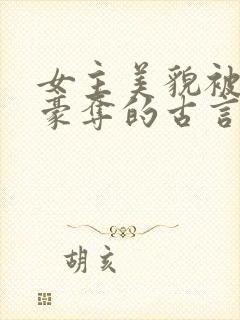 女主美貌被
豪夺的古言
胡亥